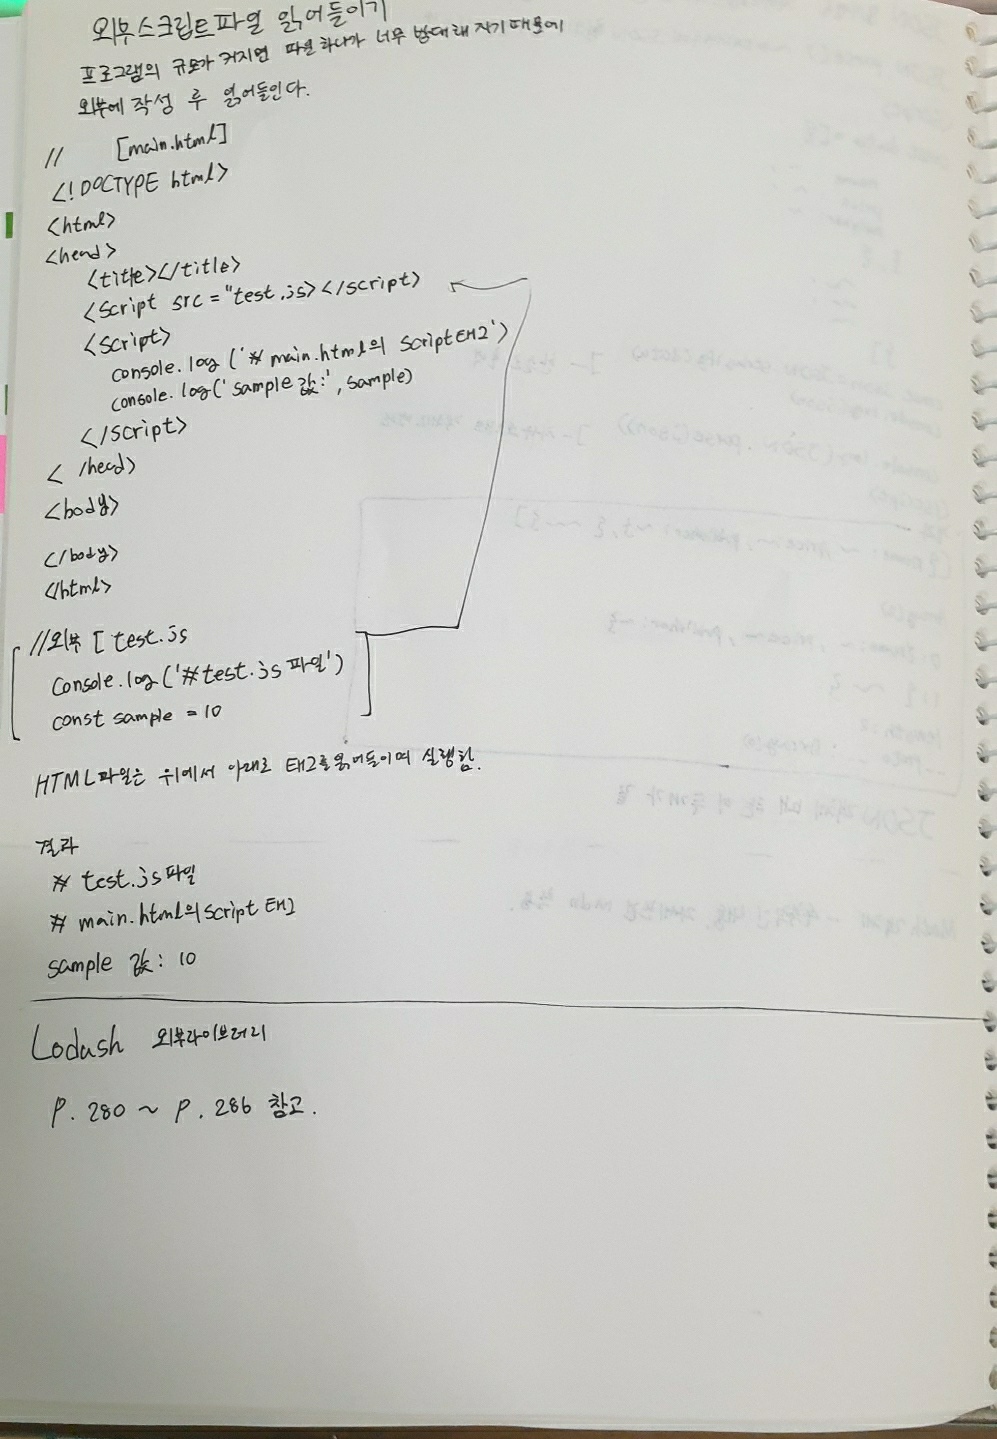 외부 스크립트 파일 읽어들이기
프로그램의 규모가 커지면 파일 하나가 너무 방대해 지기 때문에
외부에 작성 후 읽어들인다.
// [main.html]
<!DOCTYPE html>
<html>
<head>
<title></title>
<script src="test.js></script>
<script>
console.log('# main.html의 script 태그')
console.log('sample 값:', sample)
</script>
< /head>
<body>
</body>
</html>
//외부 [test.js
console.log('#test.js 파일')
const sample = 10
HTML파일은 위에서 아래로 태그를 읽어들이며 실행함.
결과
# test.js 파일
# main.html의 script 태그
sample 값: 10
Lodash 외부라이브러리
P. 280 ~ P. 286 참고.